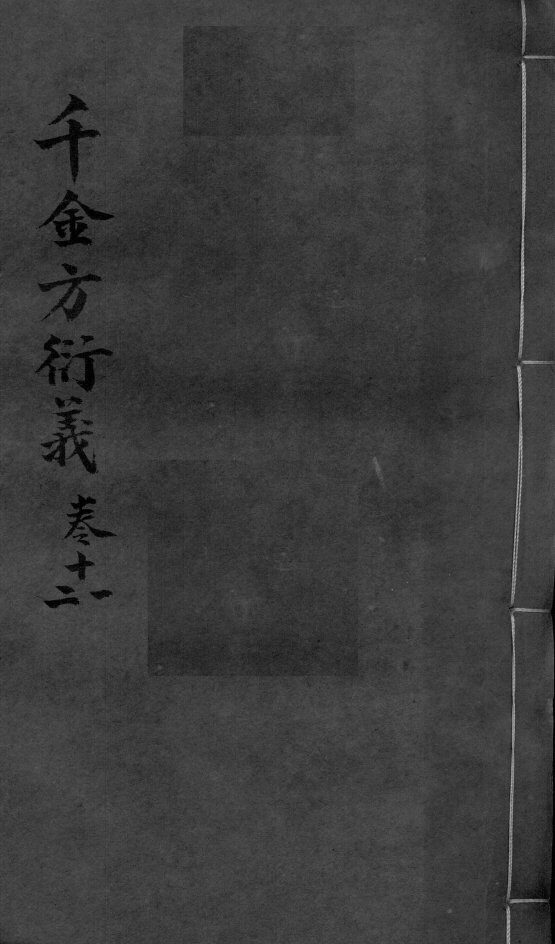 千金方衍義 卷十一二